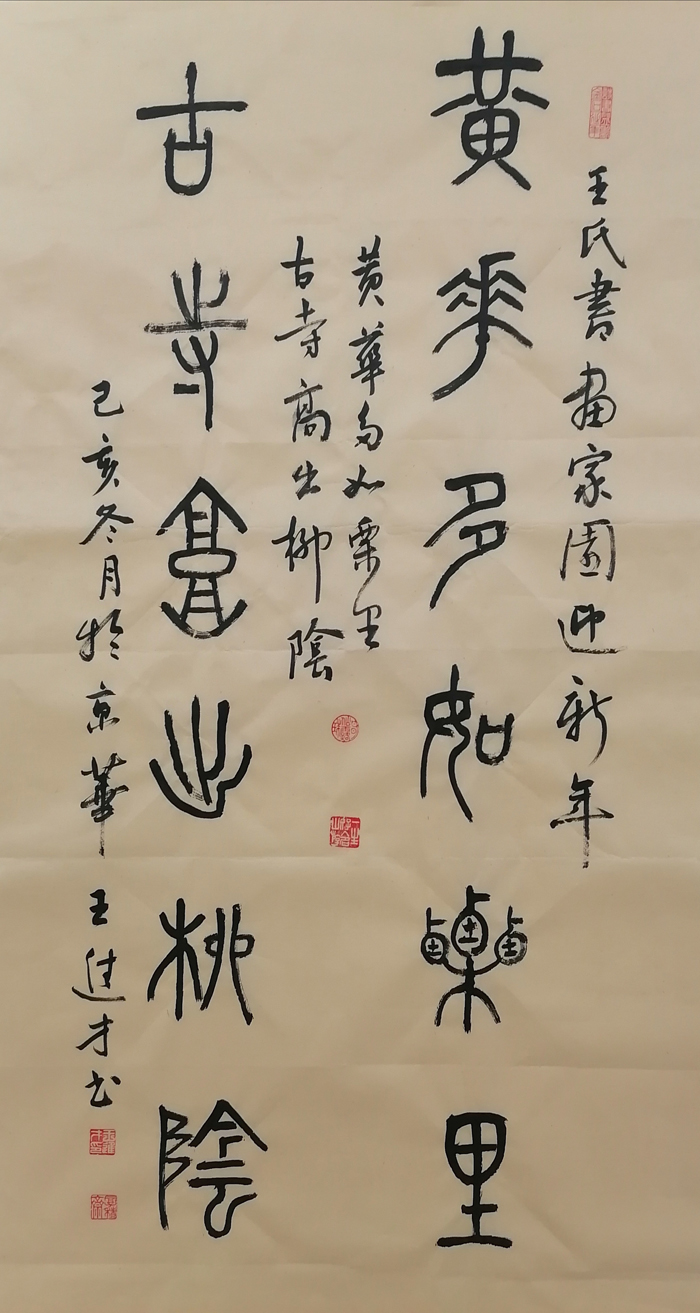 王氏書畫家園迎新年
黃華多如栗里
黃華多如栗里
古寺高出柳陰
古寺高出柳陰
己亥冬月於京華 王進才书